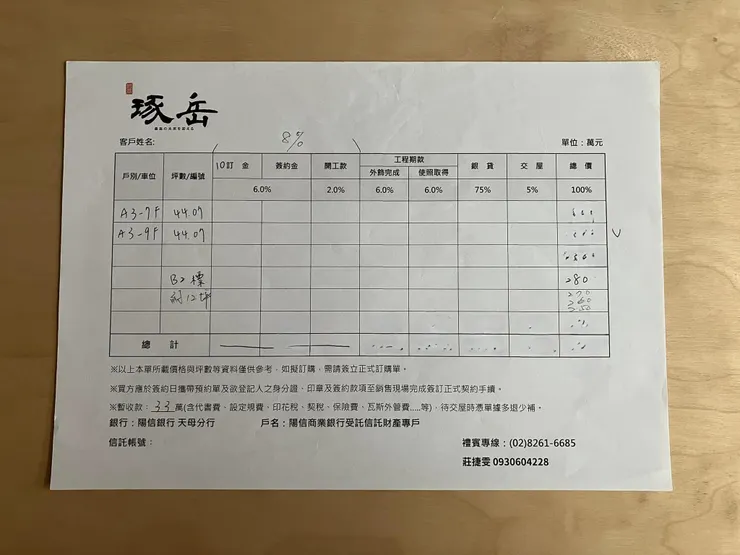 琢岳
8%
客戶姓名:
單位：萬元
戶別/車位 坪數/編號 訂金 簽約金 開工款 工程期款 銀貸 交屋 總價
外飾完成 使照取得
6.0% 2.0% 6.0% 6.0% 75% 5% 100%
A3-7F 44.07
A3-9F 44.07
B2 標 280
總計
※以上本單所載價格與坪數等資料僅供參考，如擬訂購，需請簽立正式訂購單。
※買方應於簽約日攜帶預約單及欲登記人之身分證、印章及簽約款項至銷售現場完成簽訂正式契約手續。
※暫收款：33萬(含代書費、設定規費、印花稅、契稅、保險費、瓦斯外管費.....等)，待交屋時憑單據多退少補。
銀行：陽信銀行 天母分行 戶名：陽信商業銀行受託信託財產專戶
信託帳號： 禮賓專線：(02)8261-6685
莊捷雯 0930604228